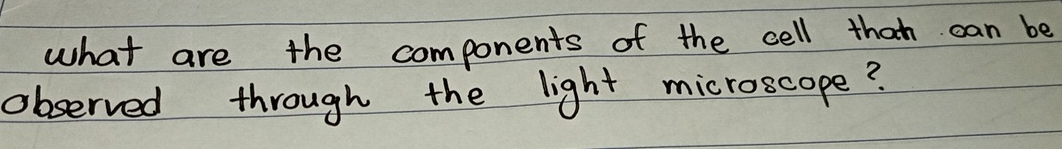 what are the components of the cell that can be
observed through the light microscope?